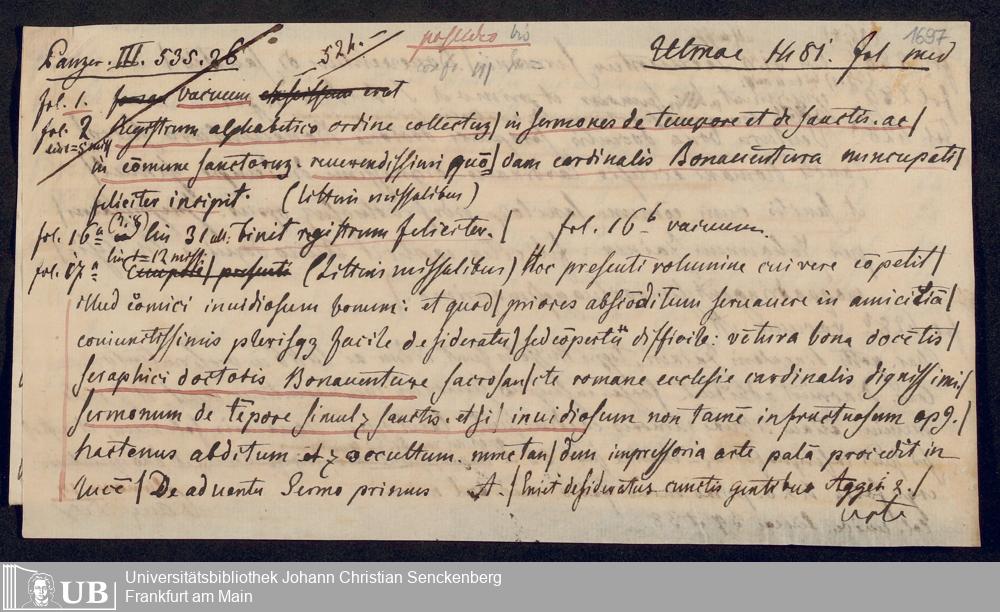 Panzer. III. 535. 26 524.– possideo bis 1697
Ulmae 1481. fol med
fol. 1. vacuum erat
fol. 2 Registrum alphabetico ordine collectuz/ in sermones de tempore et de sanctis. ac/
in cōmune sanctoruz. reuerendissimi quō/dam cardinalis Bonauentura nuncupati/
feliciter incipit. (Litteris missalibus)
fol. 16a lin 31 finit registrum feliciter./ fol. 16b vacuum.
lin 1 = 12 miss.
fol. 17a (Litteris missalibus) Hoc presenti volumine cui vere cōpetit/
illud cōmici inuidiosum bonum: et quod/ priores abscōditum seruauere in amiciciā/
coniunctissimis plerisqz facile desideratu/ sed cōpertu difficile: vētura bona docētis/
seraphici doctoris Bonauenture sacrosan/cte romane ecclesie cardinalis dignissimi/
sermonum de tēpore simulz sanctis. et si/ inuidiosum non tamē infructuosum opg./
hactenus abditum et occultum. nunc tan/dem impressoria arte palā prociedit in
lucē/ De aduentu Sermo primus A./ Eniet desideratus cunctis gentibus Aggei 2./
verte
UB Universitätsbibliothek Johann Christian Senckenberg
Frankfurt am Main